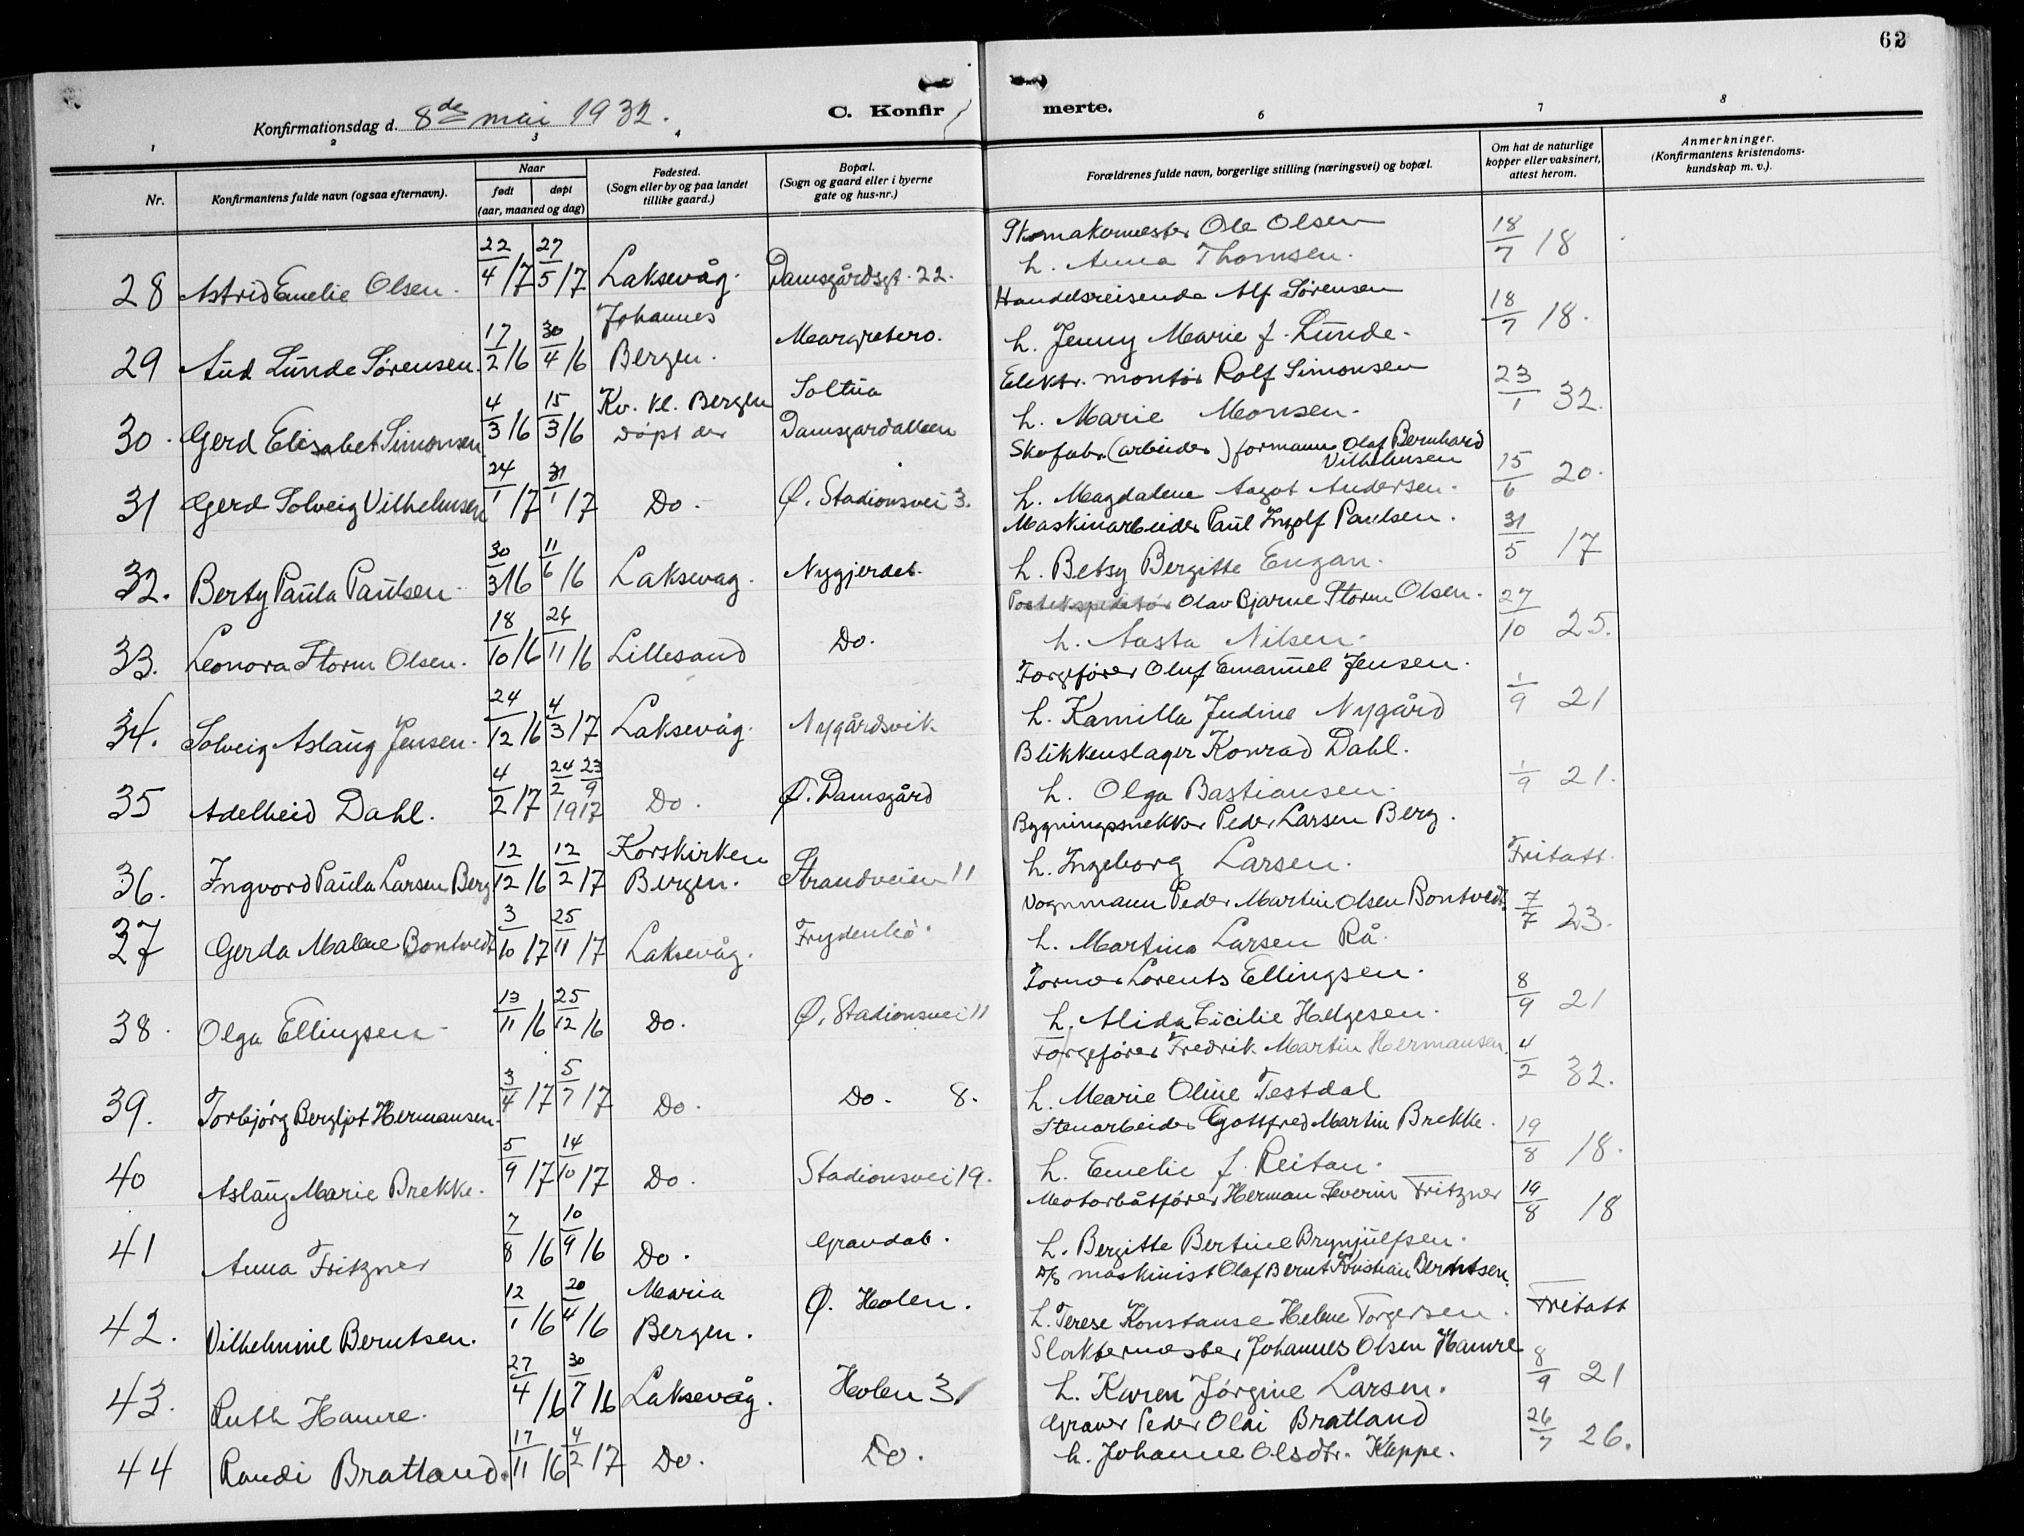 62
Konfirmationsdag d. 8de mai 1932.
C. Konfirmerte.
1 2 3 4 6 7 8
Nr.
Konfirmantens fulde navn (ogsaa efternavn).
Naar
født døpt
(aar, maaned og dag)
Fødested.
(Sogn eller by og paa landet
tillike gaard.)
Bopæl.
(Sogn og gaard eller i byerne
gate og hus-nr.)
Forældrenes fulde navn, borgerlige stilling (næringsvei) og bopæl.
Om hat de naturlige
kopper eller vaksinert,
attest herom.
Anmerkninger.
(Konfirmantens kristendoms-
kundskap m. v.).
28 Astrid Emelie Olsen. 22/4 17 27/5 17 Laksevåg. Damsgårdsgt. 22. Skomakermester Ole Olsen
h. Anna Thomsen. 18/7 18
29 Aud Lunde Sørensen. 17/2 16 30/4 16 Johannes Bergen. Margretero. Handelsreisende Alf Sørensen
h. Jenny Marie f. Lunde. 18/7 18.
30. Gerd Elisabet Simonsen 4/3 16 15/3 16 Kv. kl. Bergen døpt der Soltua Damsgardalleen Elektr. montør Rolf Simonsen
h. Marie Monsen. 23/1 32.
31 Gerd Solveig Vilhelmsen 24/1 17 31/1 17 Do. Ø. Stadionsvei 3. Skofabr. (arbeider) formann Olaf Bernhard Vilhelmsen
h. Magdalene Aagot Andersen. 15/6 20.
32. Berty Paula Paulsen. 30/3 16 11/6 16 Laksevag. Nygjerdet. Maskinarbeider Paul Ingolf Paulsen.
h. Betsy Bergitte Engan. 31/5 17
33. Leonora Storm Olsen. 18/10 16 26/11 16 Lillesand Do. Postekspeditør Olav Bjarne Storm Olsen.
h. Aasta Nilsen. 27/10 25.
34. Solveig Aslaug Jensen. 24/12 16 4/3 17 Laksevåg. Nygårdsvik Forgefører Oluf Emanuel Jensen.
h. Kamilla Judine Nygård 1/9 21
35 Adelheid Dahl. 4/2 17 24/2 23/9 1917 Do. Ø. Damsgård Blikkenslager Konrad Dahl.
h. Olga Bastiansen. 1/9 21.
36. Ingvord Paula Larsen Berg 12/12 16 12/2 17 Korskirken Bergen. Strandveien 11 Bygningssnekker Peder Larsen Berg.
h. Ingeborg Larsen. Fritatt.
37 Gerda Malene Bontvedt 3/10 17 25/11 17 Laksevåg. Frydenbø. Vognmann Peder Martin Olsen Bontvedt.
h. Martina Larsen Rå. 7/7 23.
38. Olga Ellingsen 13/11 16 25/12 16 Do. Ø. Stadionsvei 11 Former Lorents Ellingsen.
h. Alida Cicilie Helgesen. 8/9 21
39. Torbjørg Bergljot Hermansen. 3/4 17 5/7 17 Do. Do. 8. Forgefører Fredrik Martin Hermansen.
h. Marie Oline Testdal 4/2 32.
40 Aslaug Marie Brekke. 5/9 17 14/10 17 Do. Stadionsvei 19. Stenarbeider Gottfred Martin Brekke.
h. Emelie f. Reitan. 19/8 18.
41 Anna Fritzner 7/8 16 10/9 16 Do. Gravdal. Motorbåtfører Herman Severin Fritzner
h. Bergitte Bertine Brynjulfsen. 19/8 18
42. Vilhelmine Berntsen. 12/1 16 20/4 16 Maria Bergen. Ø. Holen. D/s maskinist Olaf Bernt Kristian Berntsen.
h. Terese Konstanse Helene Torgersen. Fritatt
43. Ruth Hamre. 27/4 16 30/7 16 Laksevåg. Holen 31 Slaktermester Johannes Olsen Hamre
h. Karen Jørgine Larsen. 8/9 21
44 Randi Bratland. 17/11 16 4/2 17 Do. Do. Graver Peder Olai Bratland
h. Johanne Olsdtr. Kappe. 26/7 26.